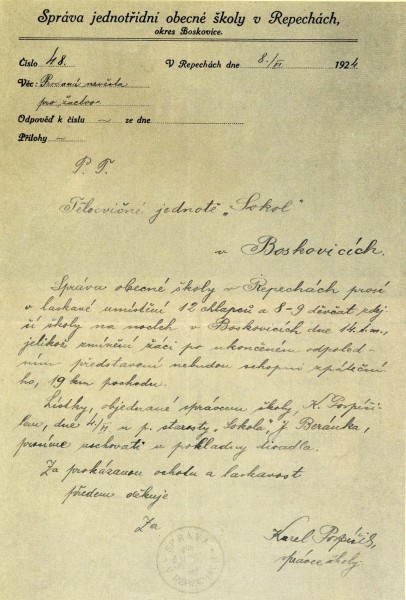 Správa jednotřídní obecné školy v Repechách,
okres Boskovice.
Číslo 48. V Repechách dne 8./VI. 1924
Věc: noclehu
pro žactvo
Odpověď k číslu ~ ze dne
Přílohy ~
P. T.
Tělocvičné jednotě „Sokol"
v Boskovicích.
Správa obecné školy v Repechách prosí
o laskavé umístění 12 chlapců a 8-9 děvčat zdej
ší školy na nocleh v Boskovicích dne 14. t. m.,
jelikož zmínění žáci po ukončeném odpoled-
ním představení nebudou schopni zpáteční-
ho, 19 km pochodu.
Lístky, objednané správcem školy, K. Pospíši-
lem, dne 4/VI u p. starosty „Sokola", J. Beránka,
prosíme uschovati u pokladny divadla.
Za prokázanou ochotu a laskavost
předem děkuje
Za
Karel Pospíšil,
správce školy.
SPRÁVA